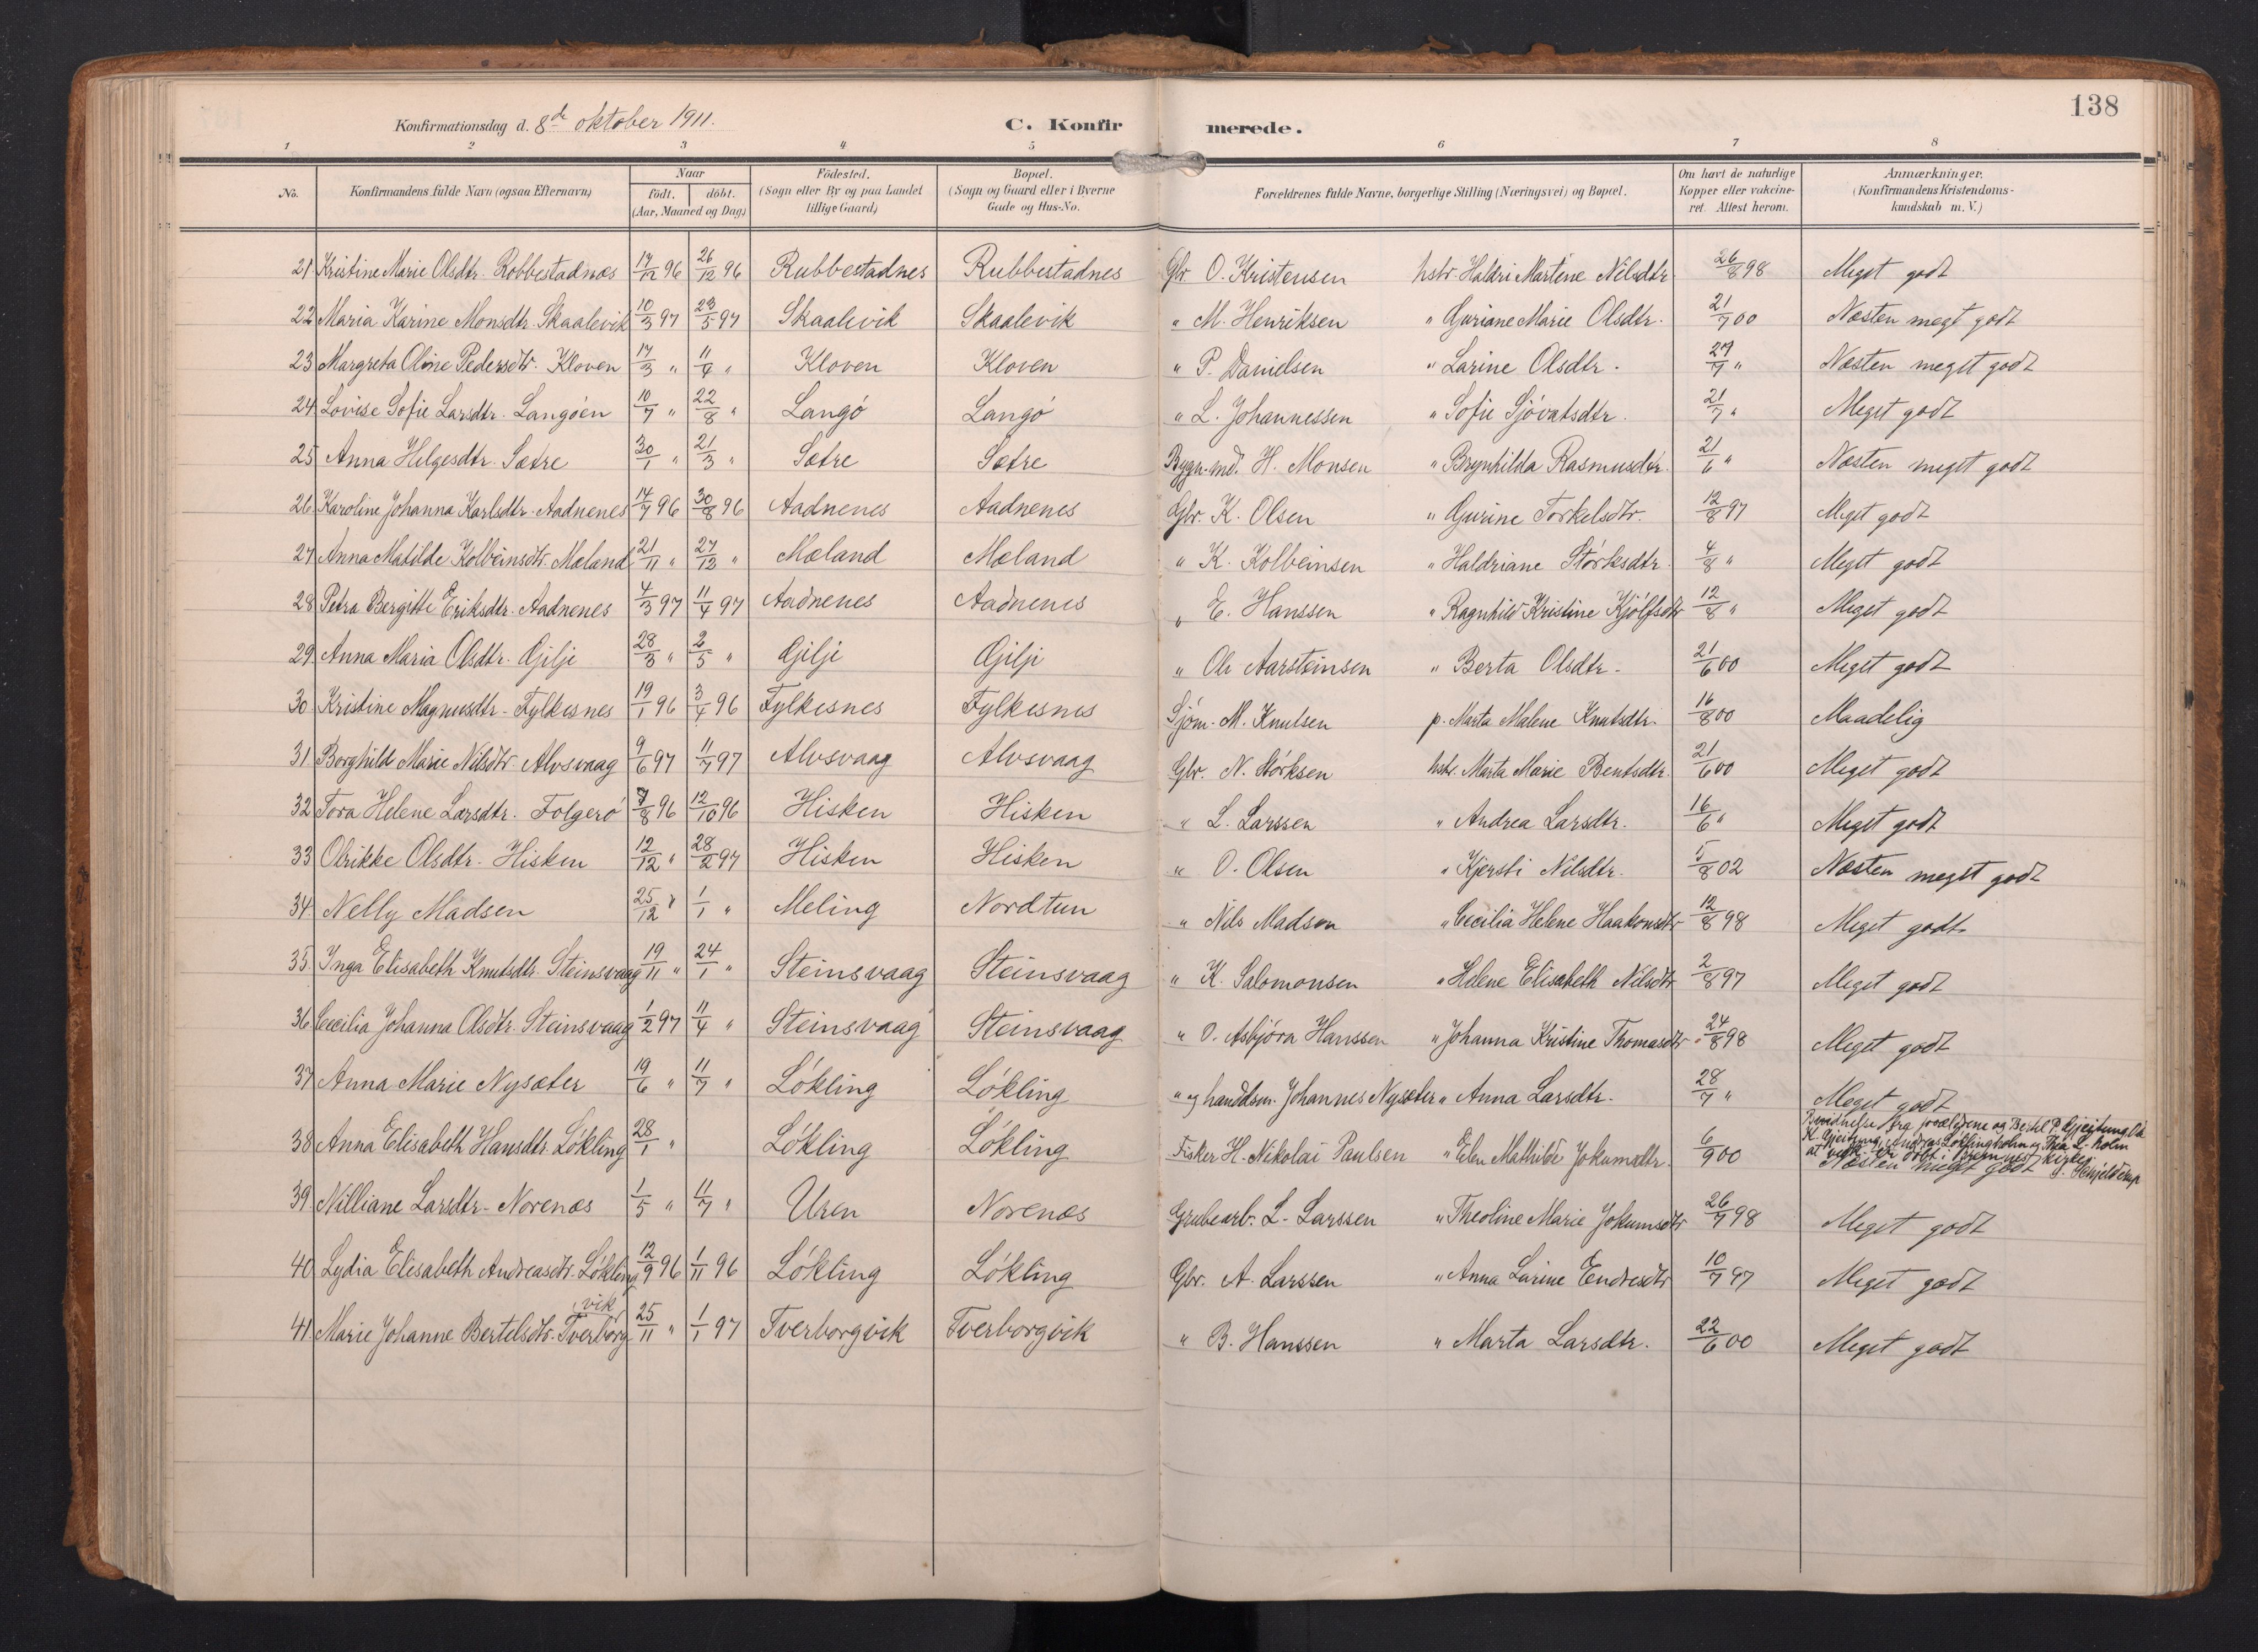 138
Konfirmationsdag d. 8de oktober 1911. C. Konfirmerede.
1 2 3 4 5 6 7 8
No. Konfirmandens fulde Navn (ogsaa Efternavn) Naar født. døbt. (Aar, Maaned og Dag) Fødested. (Sogn eller By og paa Landet tillige Gaard) Bopæl. (Sogn og Gaard eller i Byerne Gade og Hus-No. Forældrenes fulde Navne, borgerlige Stilling (Næringsvei) og Bopæl. Om havt de naturlige Kopper eller vakcineret. Attest herom. Anmærkninger. (Konfirmandens Kristendomskundskab m. V.)
21 Kristine Marie Olsdtr. Robbestadnæs 17/12 96 26/12 96 Rubbestadnes Rubbestadnes Gbr. O. Kristensen hstr. Haldri Martine Nilsdtr 26/8 98 Meget godt
22 Maria Karine Monsdtr. Skaalevik 10/3 97 23/5 97 Skaalevik Skaalevik " M. Henriksen " Guriane Marie Olsdtr. 21/7 00 Næsten meget godt
23 Margreta Oline Pedersdtr. Kloven 17/3 " 11/4 " Kloven Kloven " P. Danielsen " Larine Olsdtr. 27/7 " Næsten meget godt
24 Lovise Sofie Larsdtr. Langøen 10/7 " 22/8 " Langø Langø " L. Johannessen " Sofie Sjovatsdtr. 21/7 " Meget godt
25 Anna Helgesdtr. Sætre 30/1 " 21/3 " Sætre Sætre Bygn.md. H. Monsen " Brynhilda Rasmusdtr. 21/6 " Næsten meget godt
26 Karoline Johanna Karlsdtr. Aadnenes 14/7 96 30/8 96 Aadnenes Aadnenes Gbr. K. Olsen " Gurine Torkelsdtr. 12/8 97 Meget godt
27 Anna Matilde Kolbeinsdtr. Mæland 21/11 " 27/12 " Mæland Mæland " K. Kolbeinsen " Haldriane Størksdtr. 4/8 " Meget godt
28 Petra Bergitte Eriksdtr. Aadnenes 4/3 97 11/4 97 Aadnenes Aadnenes " E. Hanssen " Ragnhild Kristine Kjølfsdtr 12/8 " Meget godt
29 Anna Maria Olsdtr. Gilje 28/3 " 2/5 " Gilje Gilje " Ole Aarsteinsen " Berta Olsdtr. 21/6 00 Meget godt
30. Kristine Magnusdtr. Fylkesnes 19/1 96 3/4 96 Fylkesnes Fylkesnes Sjøm. M. Knutsen p. Marta Malene Knutsdtr. 16/8 00 Maadelig
31. Borghild Marie Nilsdtr. Alvsvaag 9/6 97 11/7 97 Alvsvaag Alvsvaag Gbr. N. Størksen hstr. Marta Marie Bentsdtr. 21/6 00 Meget godt
32 Tora Helene Larsdtr. Folgerø 7/8 96 12/10 96 Hisken Hisken " L. Larssen " Andrea Larsdtr. 16/6 " Meget godt
33 Olrikke Olsdtr. Hisken 12/12 " 28/2 97 Hisken Hisken " O. Olsen " Kjersti Nilsdtr. 5/8 02 Næsten meget godt
34 Nelly Madsen 25/12 " 1/1 " Meling Nordtun " Nils Madsen " Cecilia Helene Haakonsdtr 12/8 98 Meget godt
35. Inga Elisabeth Knutsdtr. Steinsvaag 19/11 " 24/1 " Steinsvaag Steinsvaag " K. Salomonsen " Helene Elisabeth Nilsdtr 2/8 97 Meget godt
36. Cecilia Johanna Olsdtr. Steinsvaag 1/2 97 11/4 " Steinsvaag Steinsvaag " O. Asbjørn Hanssen " Johanna Kristine Thomasdtr. 24/8 98 Meget godt
37 Anna Marie Nysæter 19/6 " 11/7 " Løkling Løkling " og handelsm. Johannes Nysæter " Anna Larsdtr. 28/7 " Meget godt
38 Anna Elisabeth Hansdtr. Løkling 28/1 " Løkling Løkling Fisker H. Nikolai Paulsen " Elen Mathilde Jokumsdtr. 6/9 00 forældrene og Bertel P. Gjeitung
K. Gjeitung, Andreas Løklingholm og Thea L-holm
at være døbt i Bremnes kirke
Næsten meget godt
39 Nilliane Larsdtr. Norenæs 1/5 " 11/7 " Uren Norenæs Grubearb. L. Larssen " Theoline Marie Jokumsdtr 26/7 98 Meget godt
40 Lydia Elisabeth Andreasdtr. Løkling 12/9 96 1/11 96 Løkling Løkling Gbr. A. Larssen " Anna Larine Endresdtr 10/7 97 Meget godt
41. Marie Johanne Bertelsdtr. Tverborgvik 25/11 " 1/1 97 Tverborgvik Tverborgvik " B. Hanssen " Marta Larsdtr. 22/6 00 Meget godt